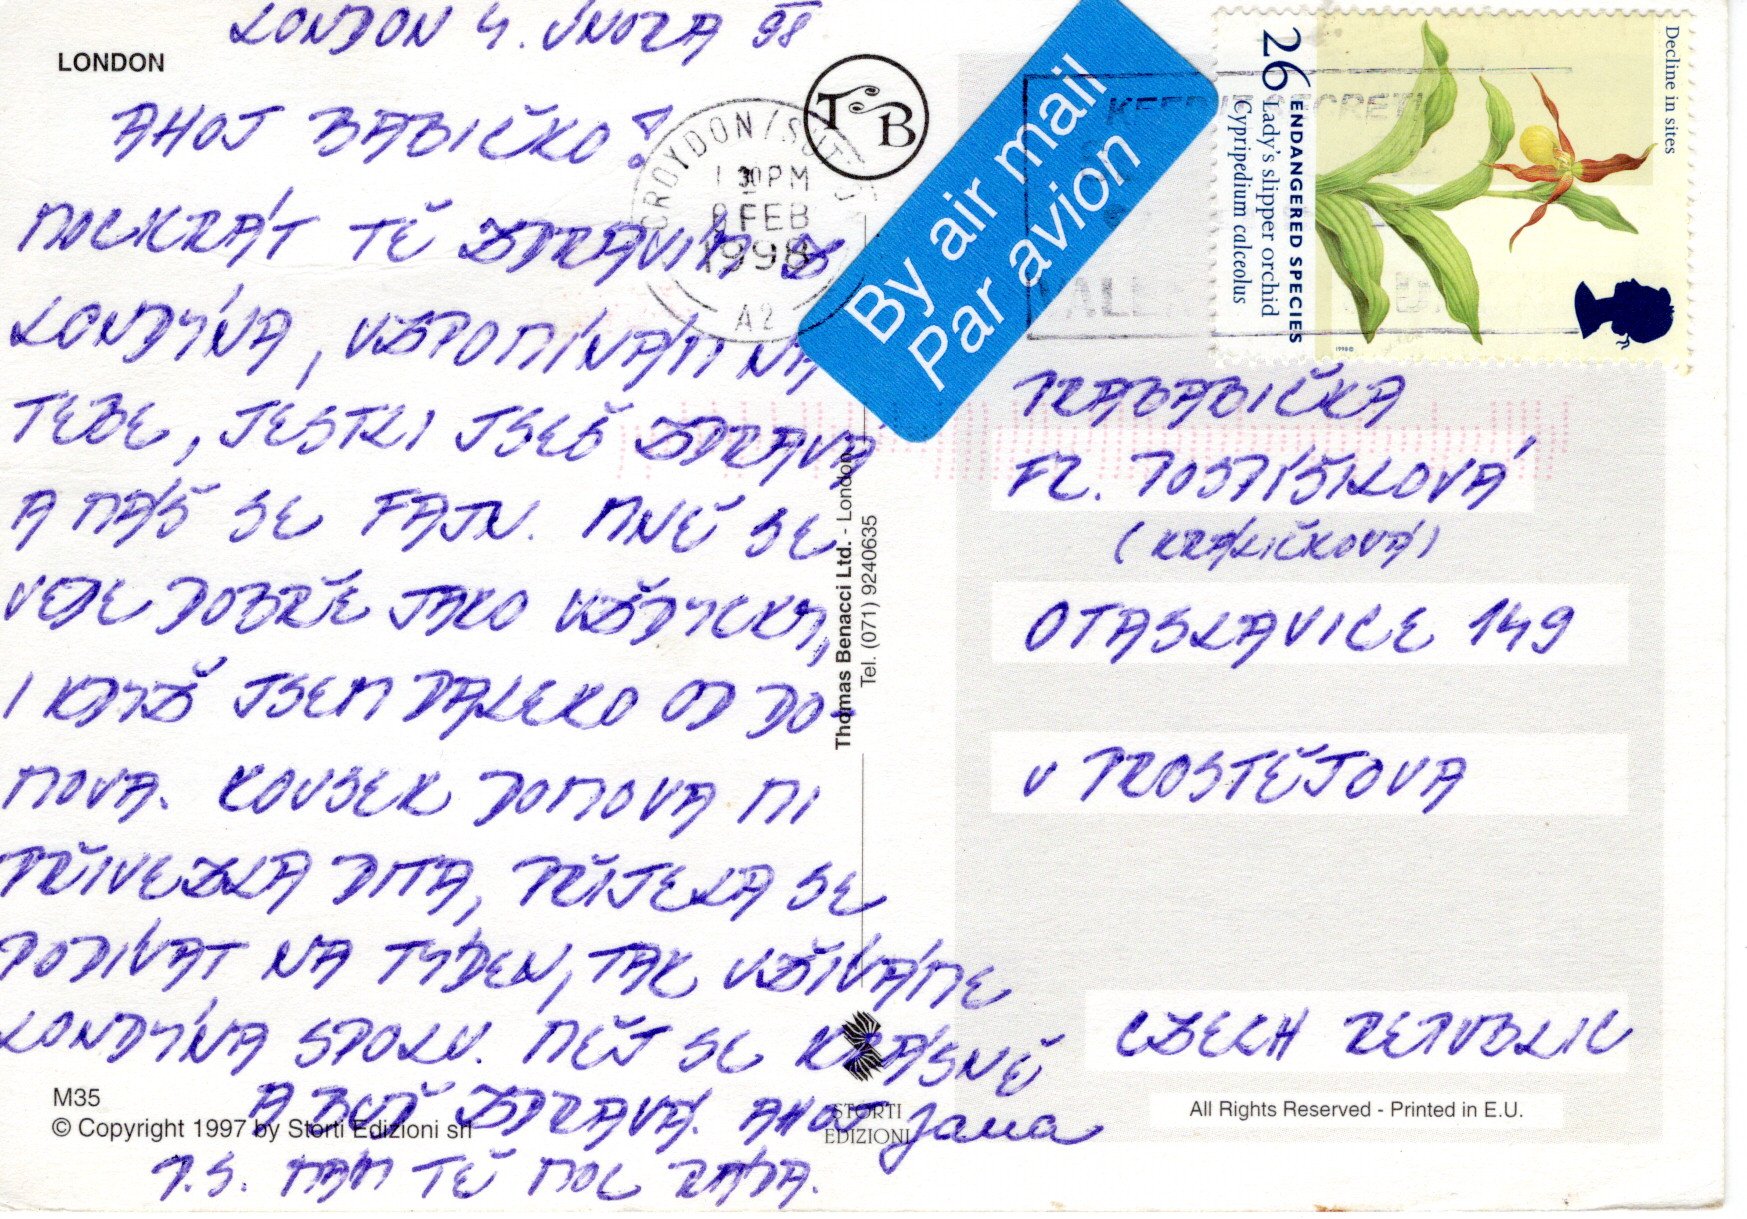 LONDON 4. ÚNORA 98
LONDON
AHOJ BABIČKO!
MOCKRÁT TĚ ZDRAVÍM Z
LONDÝNA, VZPOMÍNÁM NA
TEBE, JESTLI JSEŠ ZDRAVÁ
A MÁŠ SE FAJN. MNĚ SE
VEDE DOBŘE JAKO VŽDYCKY,
I KDYŽ JSEM DALEKO OD DO-
MOVA. KOUSEK DOMOVA MI
PŘIVEZLA DITA, PŘIJELA SE
PODÍVAT NA TÝDEN, TAK UŽÍVÁME
LONDÝNA SPOLU. MĚJ SE KRÁSNĚ
A BUĎ ZDRAVÁ. AHOJ Jana
P.S. MÁM TĚ MOC RÁDA.
M35
© Copyright 1997 by Storti Edizioni srl
STORTI
EDIZIONI
TB
CROYDON/SUT
1 30 PM
8 FEB
1998
A2
By air mail
Par avion
Thomas Benacci Ltd. - London
Tel. (071) 9240635
26
ENDANGERED SPECIES
Lady's slipper orchid
Cypripedium calceolus
Decline in sites
1998
PRABABIČKA
FR. POSPÍŠILOVÁ
(KRÁLIČKOVÁ)
OTASLAVICE 149
U PROSTĚJOVA
CZECH REPUBLIC
All Rights Reserved - Printed in E.U.